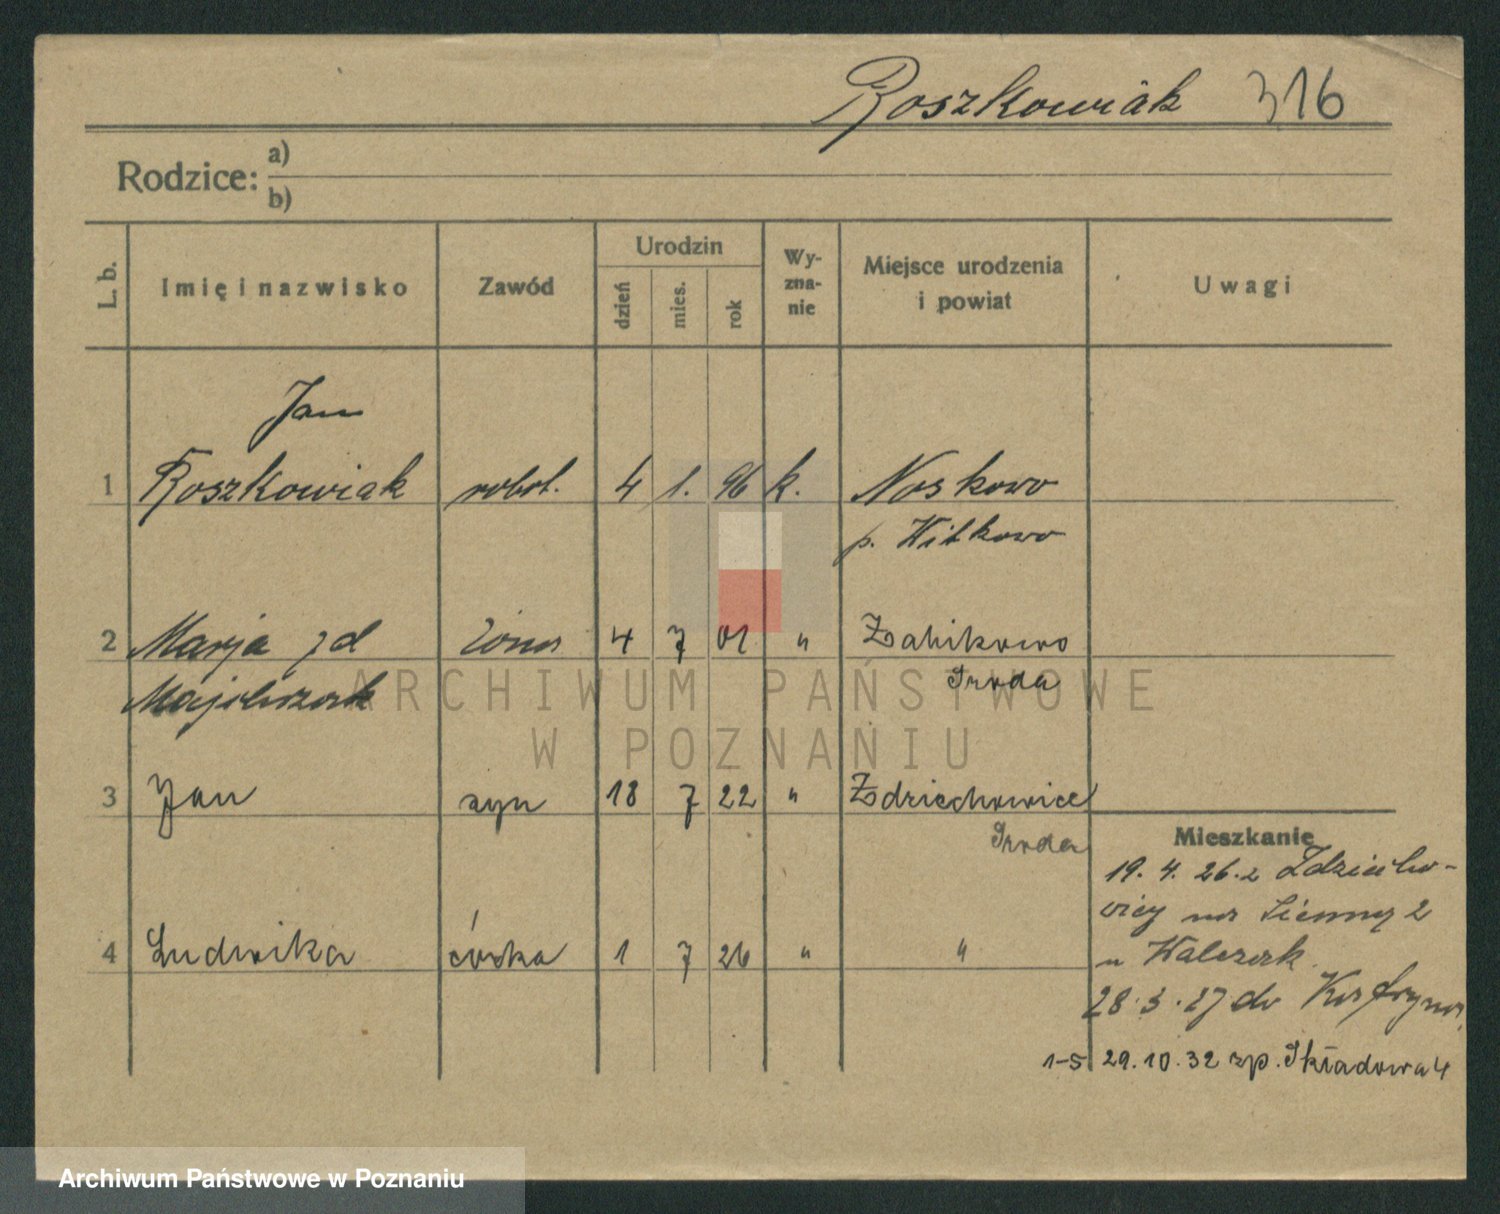 Roszkowiak 316
Rodzice: a)
b)
L. b. Imię i nazwisko Zawód Urodzin dzień mies. rok Wy-zna-nie Miejsce urodzenia i powiat Uwagi
Jan
1 Roszkowiak robot. 4 1. 96 k. Noskowo
p. Witkowo
2 Marja zd żona 4 7 01 " Żabikowo
Majchrzak Środa
3 Jan syn 18 7 22 " Zdziechowice
Środa
Mieszkanie
19. 4. 26. z Zdziecho-
4 Ludwika córka 1 7 26 " "
wicy na Sienną 2
u Walczak
28. 3. 27 do
1-5 29. 10. 32 zp. Składowa 4
ARCHIWUM PAŃSTWOWE
W POZNANIU
Archiwum Państwowe w Poznaniu